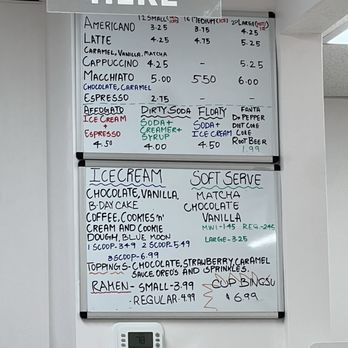 HERE
12 SMALL (HOT) 16 MEDIUM (ICE) 20 LARGE (HOT ICE)
AMERICANO 3.25 3.75 4.25
LATTE 4.25 4.75 5.25
CARAMEL, VANILLA, MATCHA
CAPPUCCINO 4.25 - 5.25
MACCHIATO 5.00 5.50 6.00
CHOCOLATE, CARAMEL
ESPRESSO 2.75 - -
AFFOGATO
ICE CREAM
+
ESPRESSO
4.50
DIRTY SODA
SODA +
CREAMER +
SYRUP
4.00
FLOATY
SODA +
ICE CREAM
4.50
FANTA
DR PEPPER
DIET COKE
COKE
ROOT BEER
1.99
ICECREAM
CHOCOLATE, VANILLA,
B-DAY CAKE
COFFEE, COOKIES 'N'
CREAM AND COOKIE
DOUGH, BLUE MOON
1 SCOOP-3.49 2 SCOOP-5.49
3 SCOOP-6.99
SOFT SERVE
MATCHA
CHOCOLATE
VANILLA
MINI-1.45 REG-2.45
LARGE-3.25
TOPPINGS- CHOCOLATE, STRAWBERRY, CARAMEL
SAUCE, OREO'S AND SPRINKLES.
RAMEN- SMALL-3.99
REGULAR-4.99
CUP BINGSU
$6.99